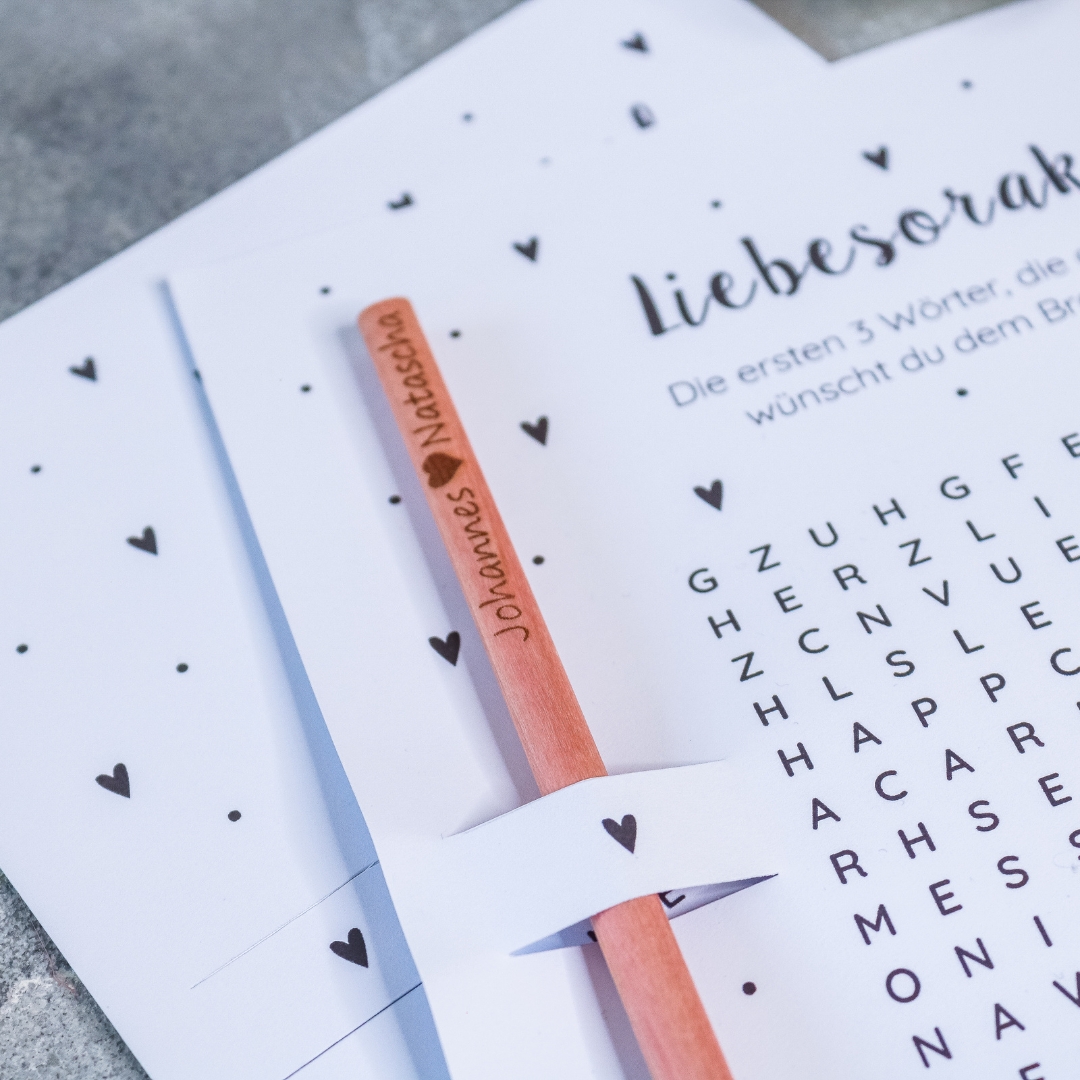 Johannes ♥ Natascha
Liebesorak
Die ersten 3 Wörter, die
wünscht du dem Br
G Z U H G F E
H E R Z L I
Z C N V U E
H L S L E
H A P P C
A C A R
R H S E
M E S S
O N I
N A V